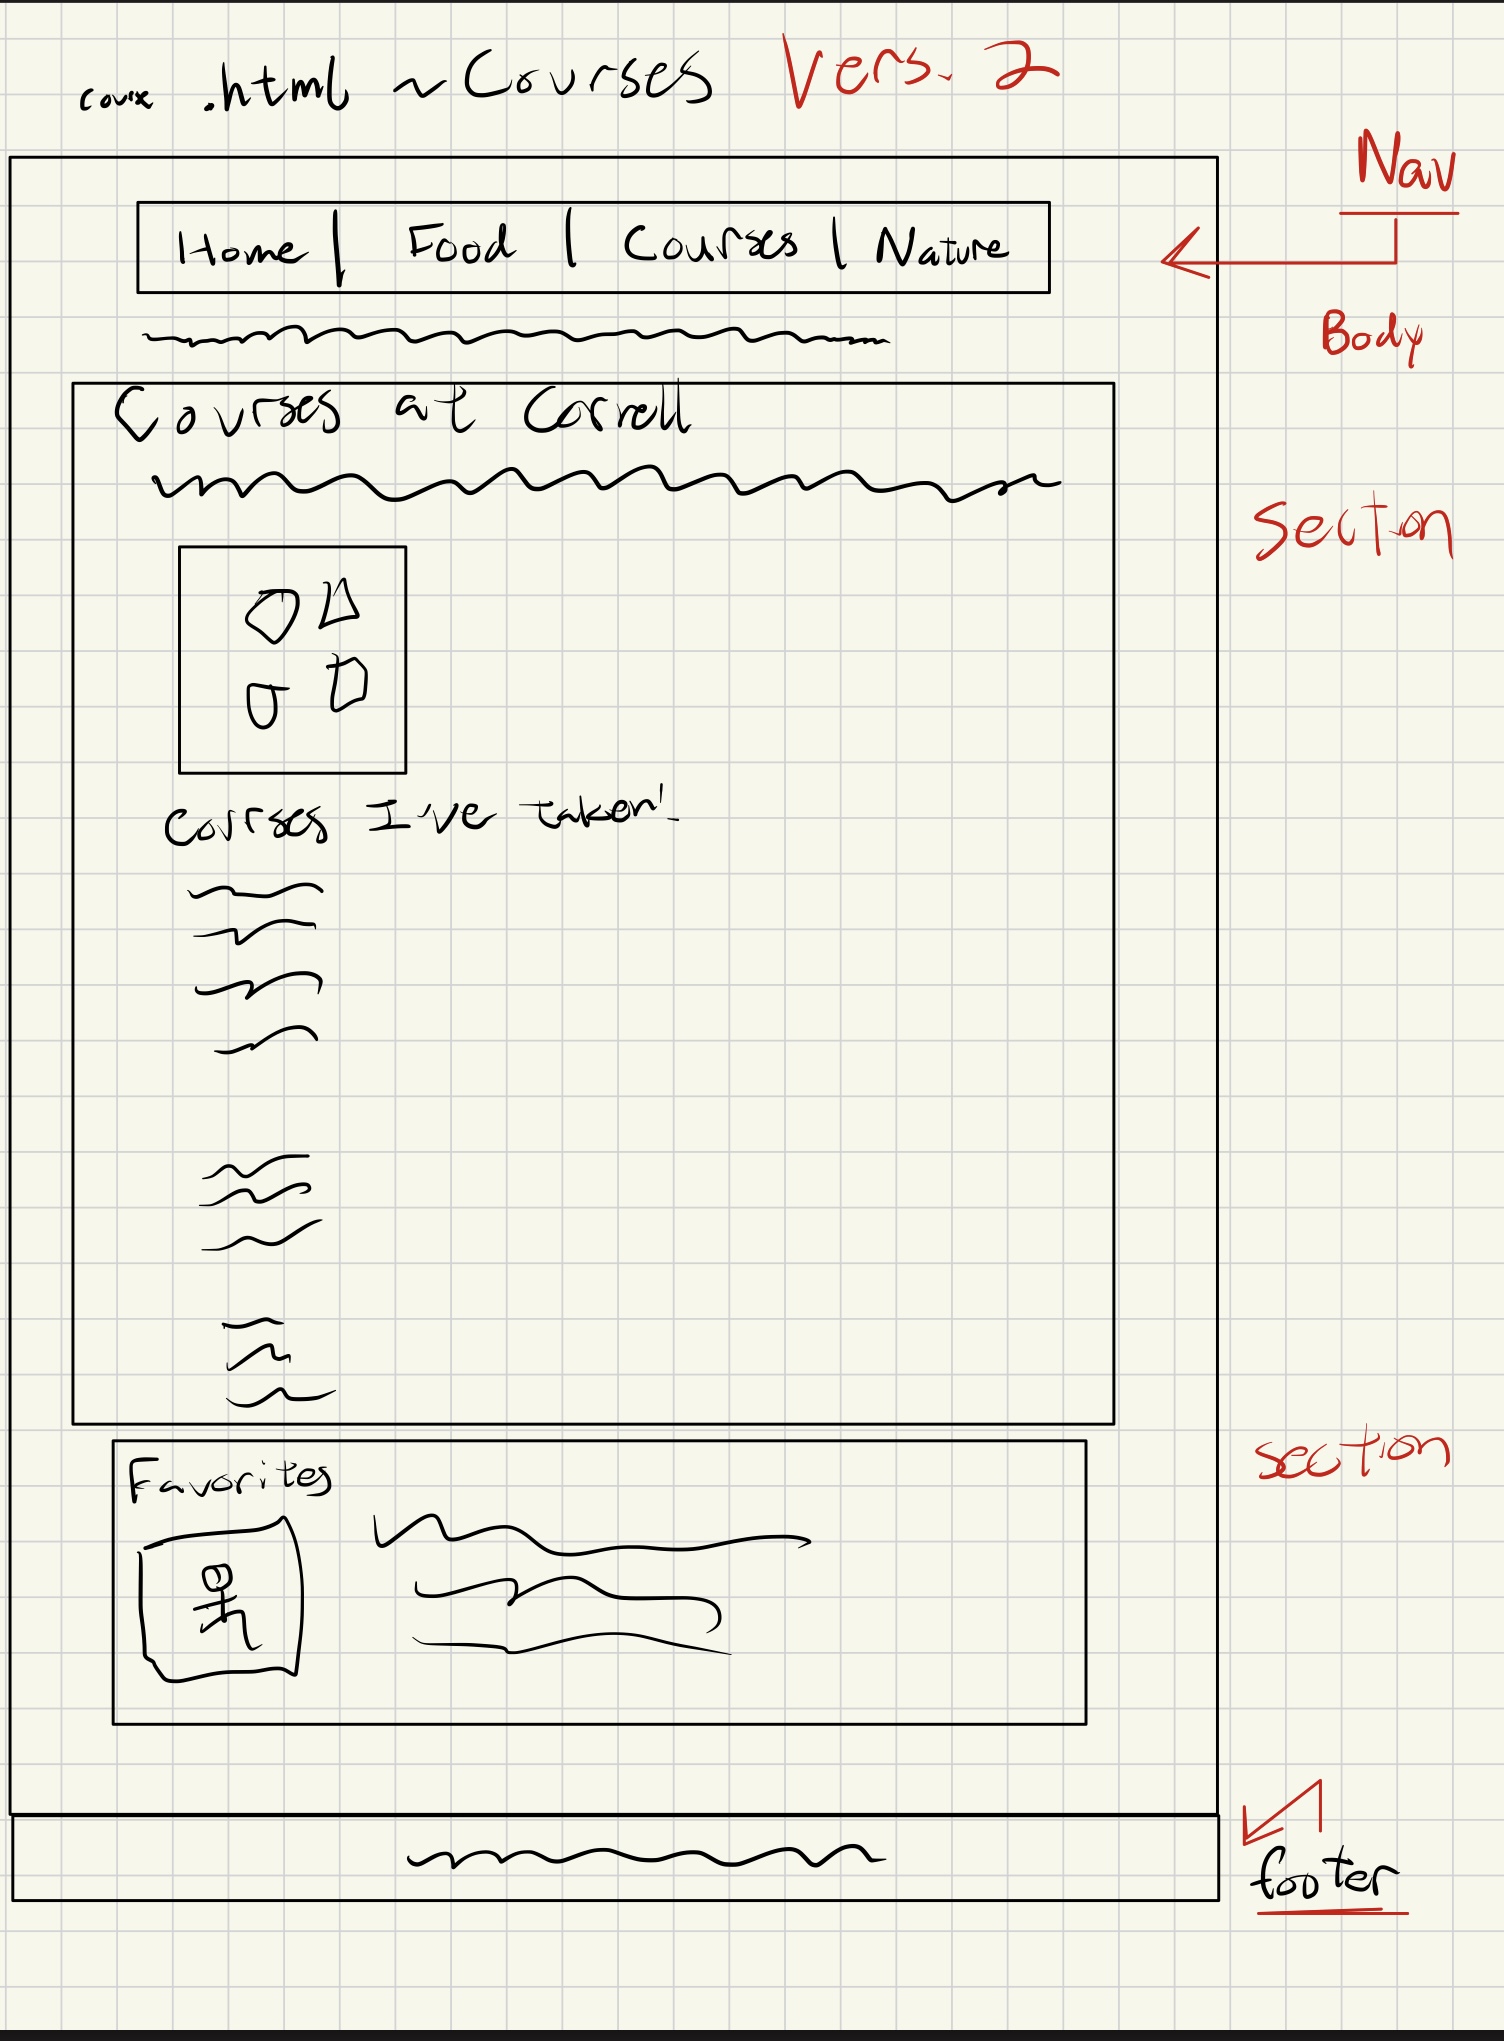 course .html ~ Courses Vers. 2
Nav
Home | Food | Courses | Nature
Body
Courses at Cornell
Section
Courses I've taken!
section
Favorites
footer